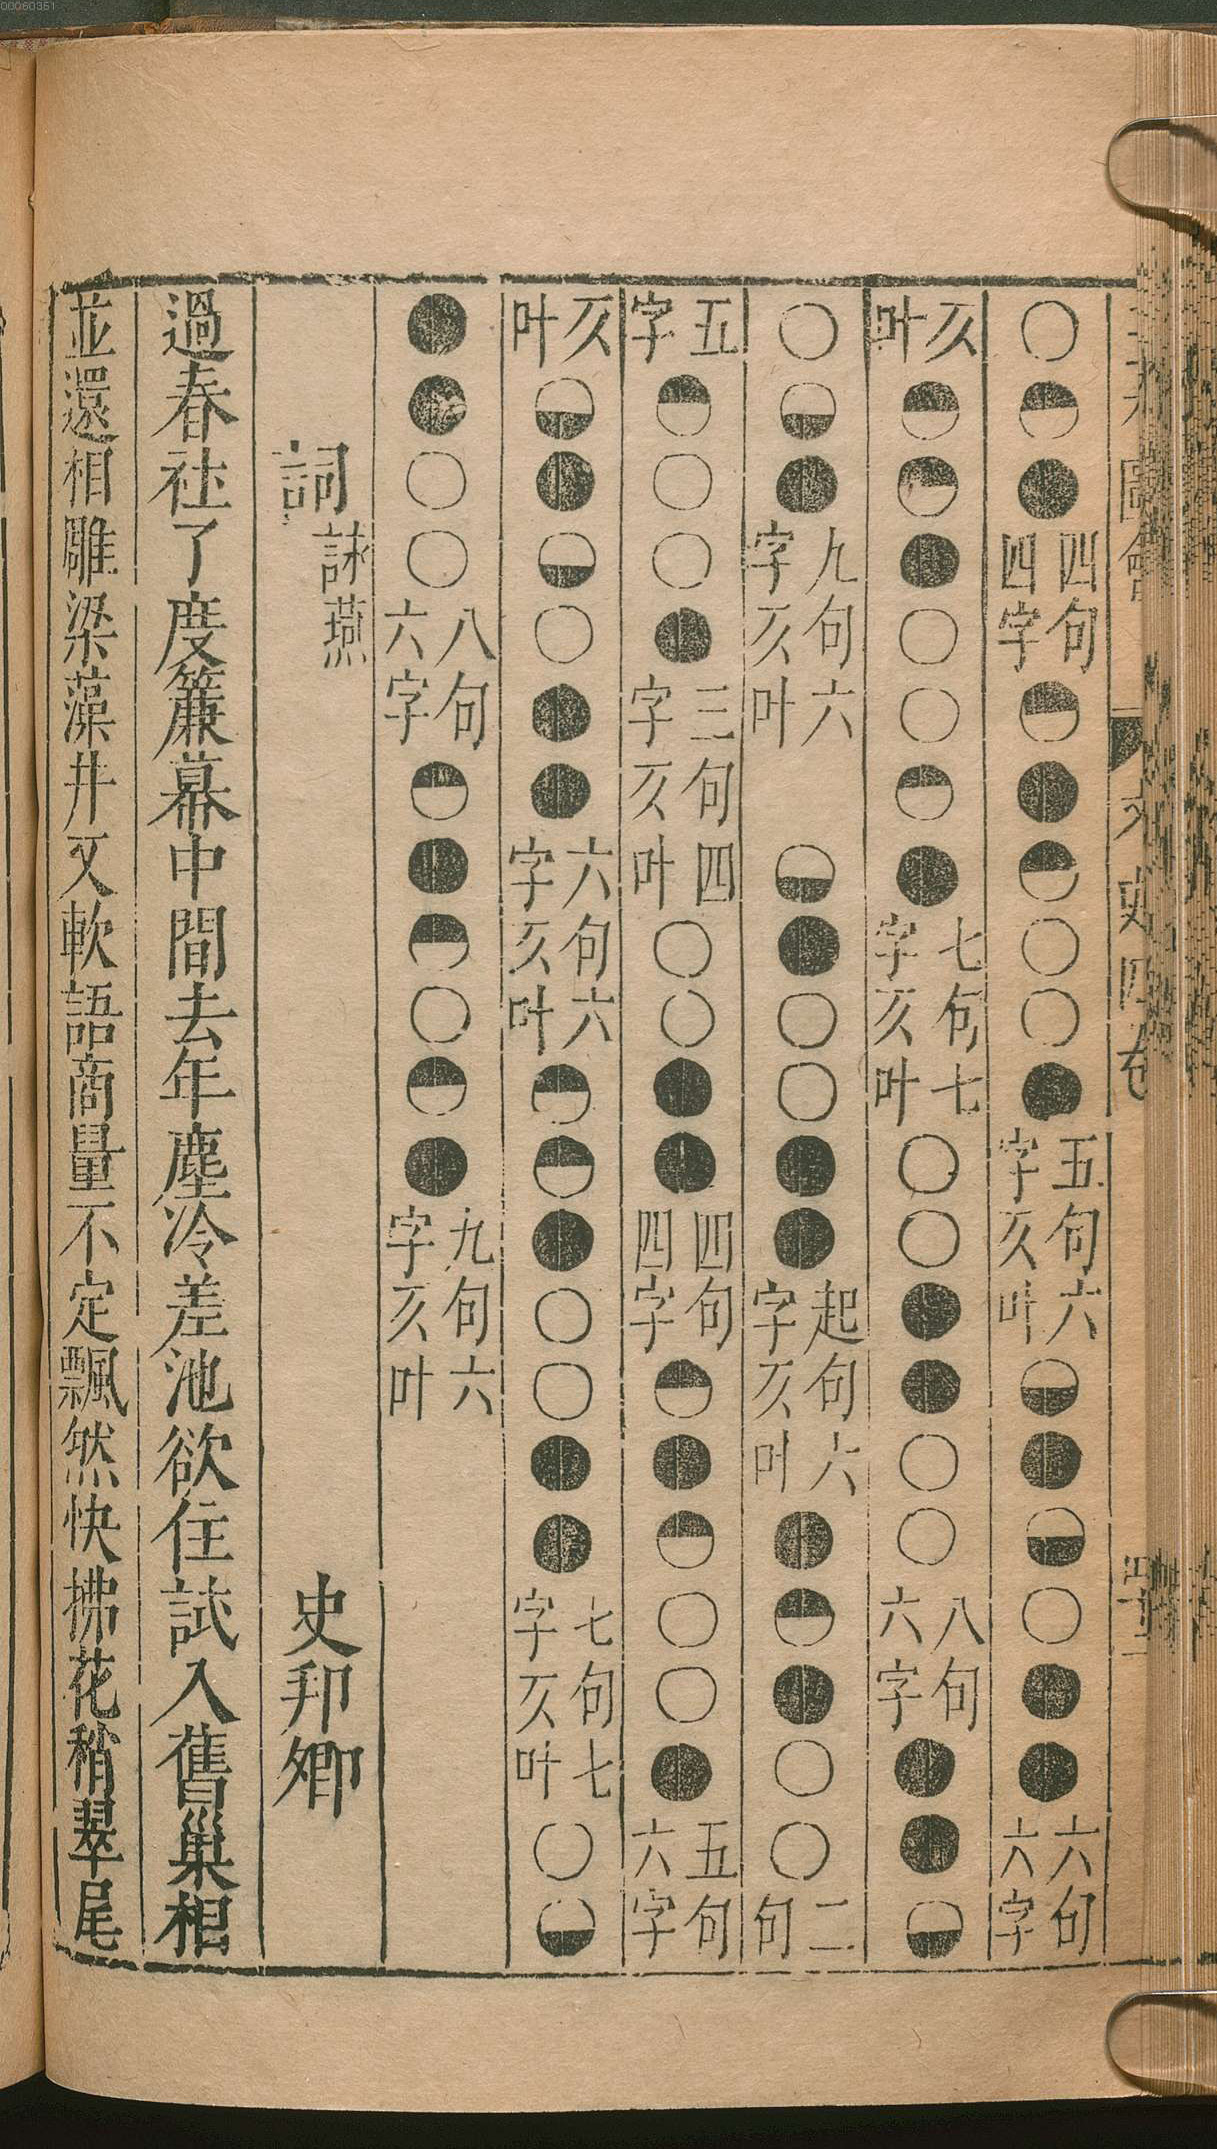 00060351
三才圖會 文史四卷
○◓●四句四字◓●◓○○●五句六字亥叶◒●◒○●●六句六字
亥叶◓◓●○○◓●七句七字亥叶○○●●○○八句六字●●◒
○◒●九句六字亥叶 ◒●○○●●起句六字亥叶●◓●○○二句
五字◓○○●三句四字亥叶○○●●四句四字◓●◓○○●五句六字
亥叶◒●◒○●●六句六字亥叶◓◓●○○●●七句七字亥叶○◒
●●○○八句六字◓●◓○◓●九句六字亥叶
詞 詠燕 史邦卿
過春社了度簾幕中間去年塵冷差池欲住試入舊巢相
並還相雕梁藻井又軟語商量不定飄然快拂花稍翠尾